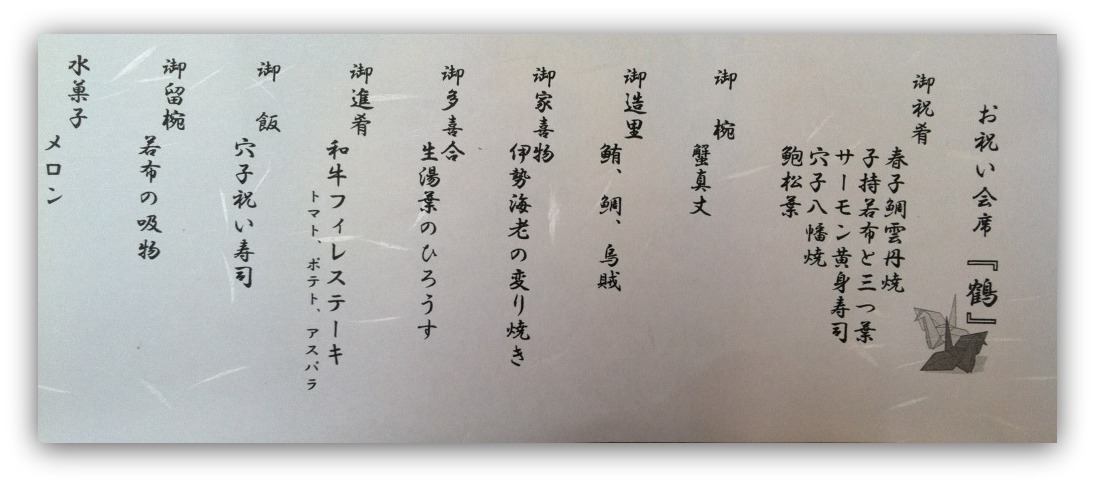 お祝い会席『鶴』
御祝肴
春子鯛雲丹焼
子持若布と三つ葉
サーモン黄身寿司
穴子八幡焼
鮑松葉
御椀
蟹真丈
御造里
鮪、鯛、烏賊
御家喜物
伊勢海老の変り焼き
御多喜合
生湯葉のひろうす
御進肴
和牛フィレステーキ
トマト、ポテト、アスパラ
御飯
穴子祝い寿司
御留椀
若布の吸物
水菓子
メロン